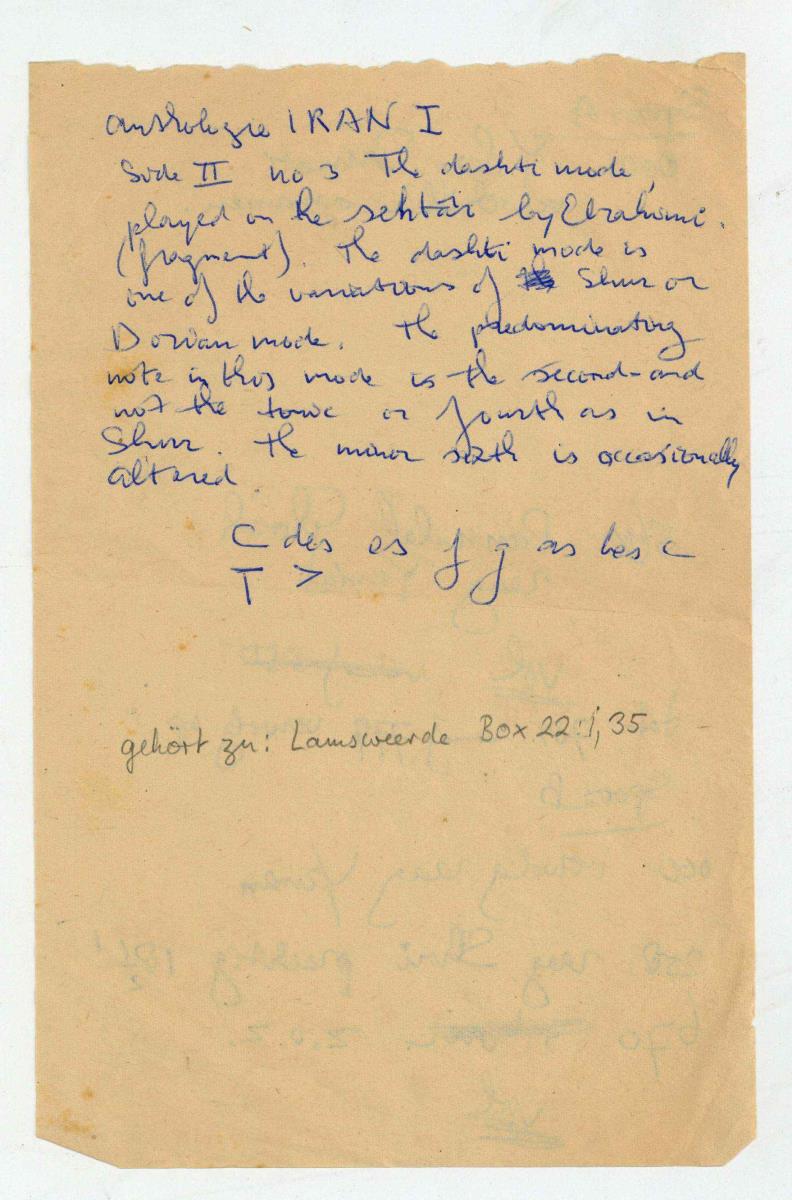 anthologie IRAN I
Side II no 3 The dashti mode,
played on the sehtâr by Ebrahimi.
(fragment). The dashti mode is
one of the variations of Shur or
Dorian mode. The predominating
note in this mode is the second-and
not the tonic or fourth as in
Shur. The minor sixth is occasionally
altered
C des es f g as bes c
T >
gehört zu: Lamsweerde Box 22:1,35